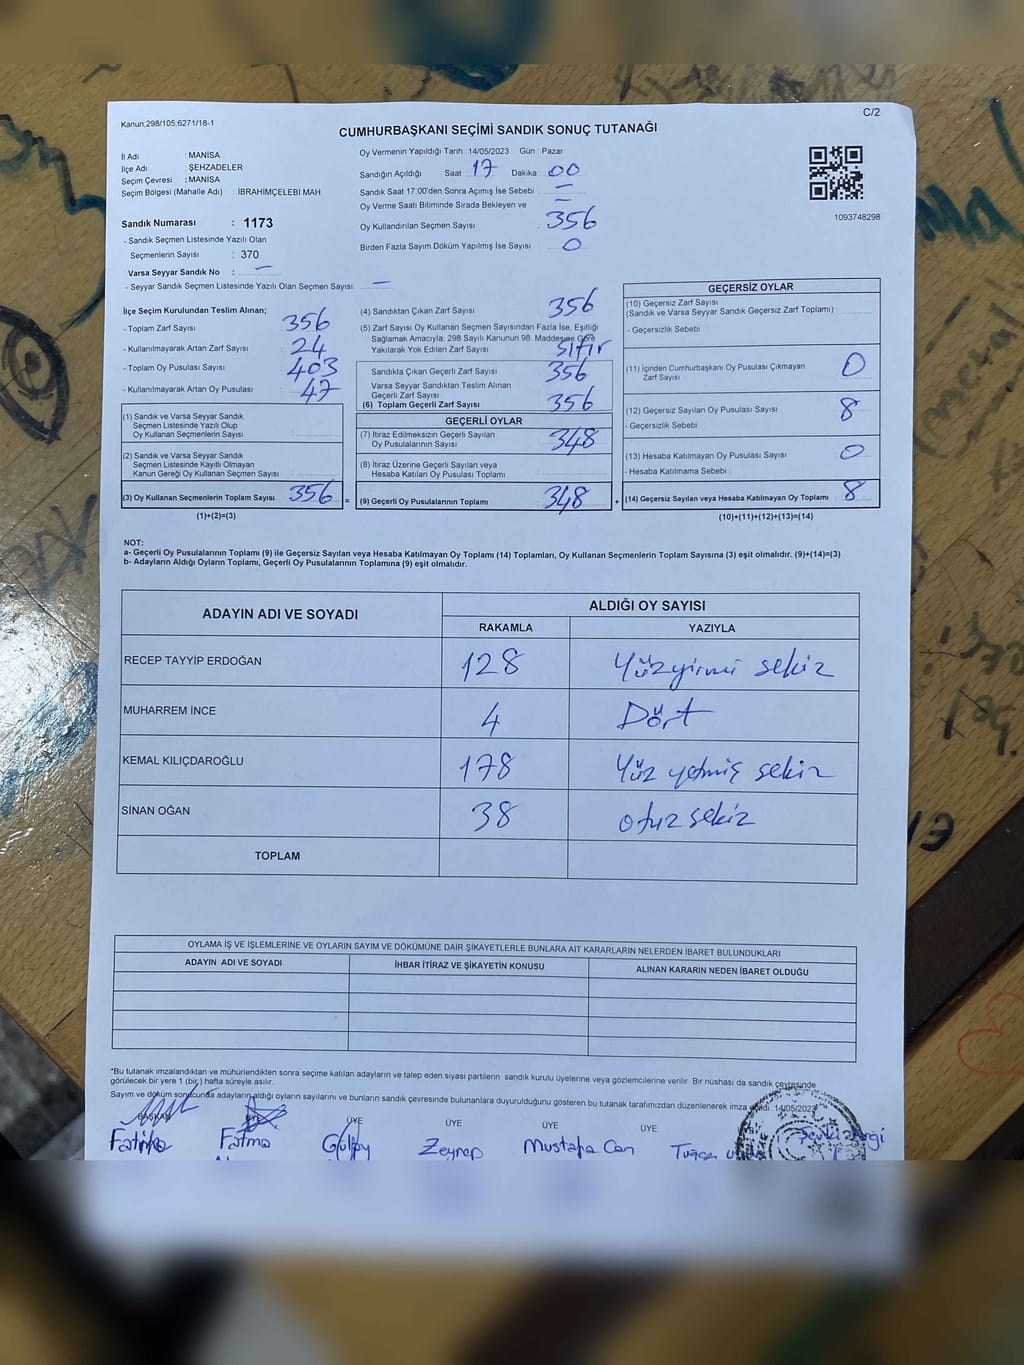 Kanun;298/105,6271/18-1
C/2
CUMHURBAŞKANI SEÇİMİ SANDIK SONUÇ TUTANAĞI
İl Adı : MANİSA
İlçe Adı : ŞEHZADELER
Seçim Çevresi : MANİSA
Seçim Bölgesi (Mahalle Adı) : İBRAHİMÇELEBİ MAH
Sandık Numarası : 1173
- Sandık Seçmen Listesinde Yazılı Olan
Seçmenlerin Sayısı : 370
Varsa Seyyar Sandık No : —
- Seyyar Sandık Seçmen Listesinde Yazılı Olan Seçmen Sayısı: —
Oy Vermenin Yapıldığı Tarih :14/05/2023 Gün : Pazar
Sandığın Açıldığı Saat : 17 Dakika : 00
Sandık Saat 17:00'den Sonra Açımış İse Sebebi : —
Oy Verme Saati Bitiminde Sırada Bekleyen ve —
Oy Kullandırılan Seçmen Sayısı : 356
Birden Fazla Sayım Döküm Yapılmış İse Sayısı : 0
1093748298
İlçe Seçim Kurulundan Teslim Alınan;
- Toplam Zarf Sayısı : 356
- Kullanılmayarak Artan Zarf Sayısı : 24
- Toplam Oy Pusulası Sayısı : 403
- Kullanılmayarak Artan Oy Pusulası : 47
(1) Sandık ve Varsa Seyyar Sandık
Seçmen Listesinde Yazılı Olup
Oy Kullanan Seçmenlerin Sayısı :
(2) Sandık ve Varsa Seyyar Sandık
Seçmen Listesinde Kayıtlı Olmayan
Kanun Gereği Oy Kullanan Seçmen Sayısı :
(3) Oy Kullanan Seçmenlerin Toplam Sayısı : 356 =
(1)+(2)=(3)
(4) Sandıktan Çıkan Zarf Sayısı : 356
(5) Zarf Sayısı Oy Kullanan Seçmen Sayısından Fazla İse, Eşitliği
Sağlamak Amacıyla, 298 Sayılı Kanunun 98. Maddesine Göre
Yakılarak Yok Edilen Zarf Sayısı : sıfır
Sandıkta Çıkan Geçerli Zarf Sayısı : 356
Varsa Seyyar Sandıktan Teslim Alınan
Geçerli Zarf Sayısı :
(6) Toplam Geçerli Zarf Sayısı : 356
GEÇERLİ OYLAR
(7) İtiraz Edilmeksizin Geçerli Sayılan
Oy Pusulalarının Sayısı : 348
(8) İtiraz Üzerine Geçerli Sayılan veya
Hesaba Katılan Oy Pusulası Toplamı :
(9) Geçerli Oy Pusulalarının Toplamı : 348 +
GEÇERSİZ OYLAR
(10) Geçersiz Zarf Sayısı
(Sandık ve Varsa Seyyar Sandık Geçersiz Zarf Toplamı) :
- Geçersizlik Sebebi :
(11) İçinden Cumhurbaşkanı Oy Pusulası Çıkmayan
Zarf Sayısı : 0
(12) Geçersiz Sayılan Oy Pusulası Sayısı : 8
- Geçersizlik Sebebi :
(13) Hesaba Katılmayan Oy Pusulası Sayısı : 0
- Hesaba Katılmama Sebebi :
(14) Geçersiz Sayılan veya Hesaba Katılmayan Oy Toplamı : 8
(10)+(11)+(12)+(13)=(14)
NOT:
a- Geçerli Oy Pusulalarının Toplamı (9) ile Geçersiz Sayılan veya Hesaba Katılmayan Oy Toplamı (14) Toplamları, Oy Kullanan Seçmenlerin Toplam Sayısına (3) eşit olmalıdır. (9)+(14)=(3)
b- Adayların Aldığı Oyların Toplamı, Geçerli Oy Pusulalarının Toplamına (9) eşit olmalıdır.
ADAYIN ADI VE SOYADI ALDIĞI OY SAYISI
RAKAMLA YAZIYLA
RECEP TAYYİP ERDOĞAN 128 Yüzyirmi sekiz
MUHARREM İNCE 4 Dört
KEMAL KILIÇDAROĞLU 178 Yüz yetmiş sekiz
SİNAN OĞAN 38 otuzsekiz
TOPLAM
OYLAMA İŞ VE İŞLEMLERİNE VE OYLARIN SAYIM VE DÖKÜMÜNE DAİR ŞİKAYETLERLE BUNLARA AİT KARARLARIN NELERDEN İBARET BULUNDUKLARI
ADAYIN ADI VE SOYADI İHBAR İTİRAZ VE ŞİKAYETİN KONUSU ALINAN KARARIN NEDEN İBARET OLDUĞU
*Bu tutanak imzalandıktan ve mühürlendikten sonra seçime katılan adayların ve talep eden siyasi partilerin sandık kurulu üyelerine veya gözlemcilerine verilir. Bir nüshası da sandık çevresinde
görülecek bir yere 1 (bir) hafta süreyle asılır.
Sayım ve döküm sonucunda adayların aldığı oyların sayılarını ve bunların sandık çevresinde bulunanlara duyurulduğunu gösteren bu tutanak tarafımızdan düzenlenerek imza edildi. 14/05/2023
BAŞKAN ÜYE ÜYE ÜYE ÜYE ÜYE
Fatma Zeynep Mustafa Can